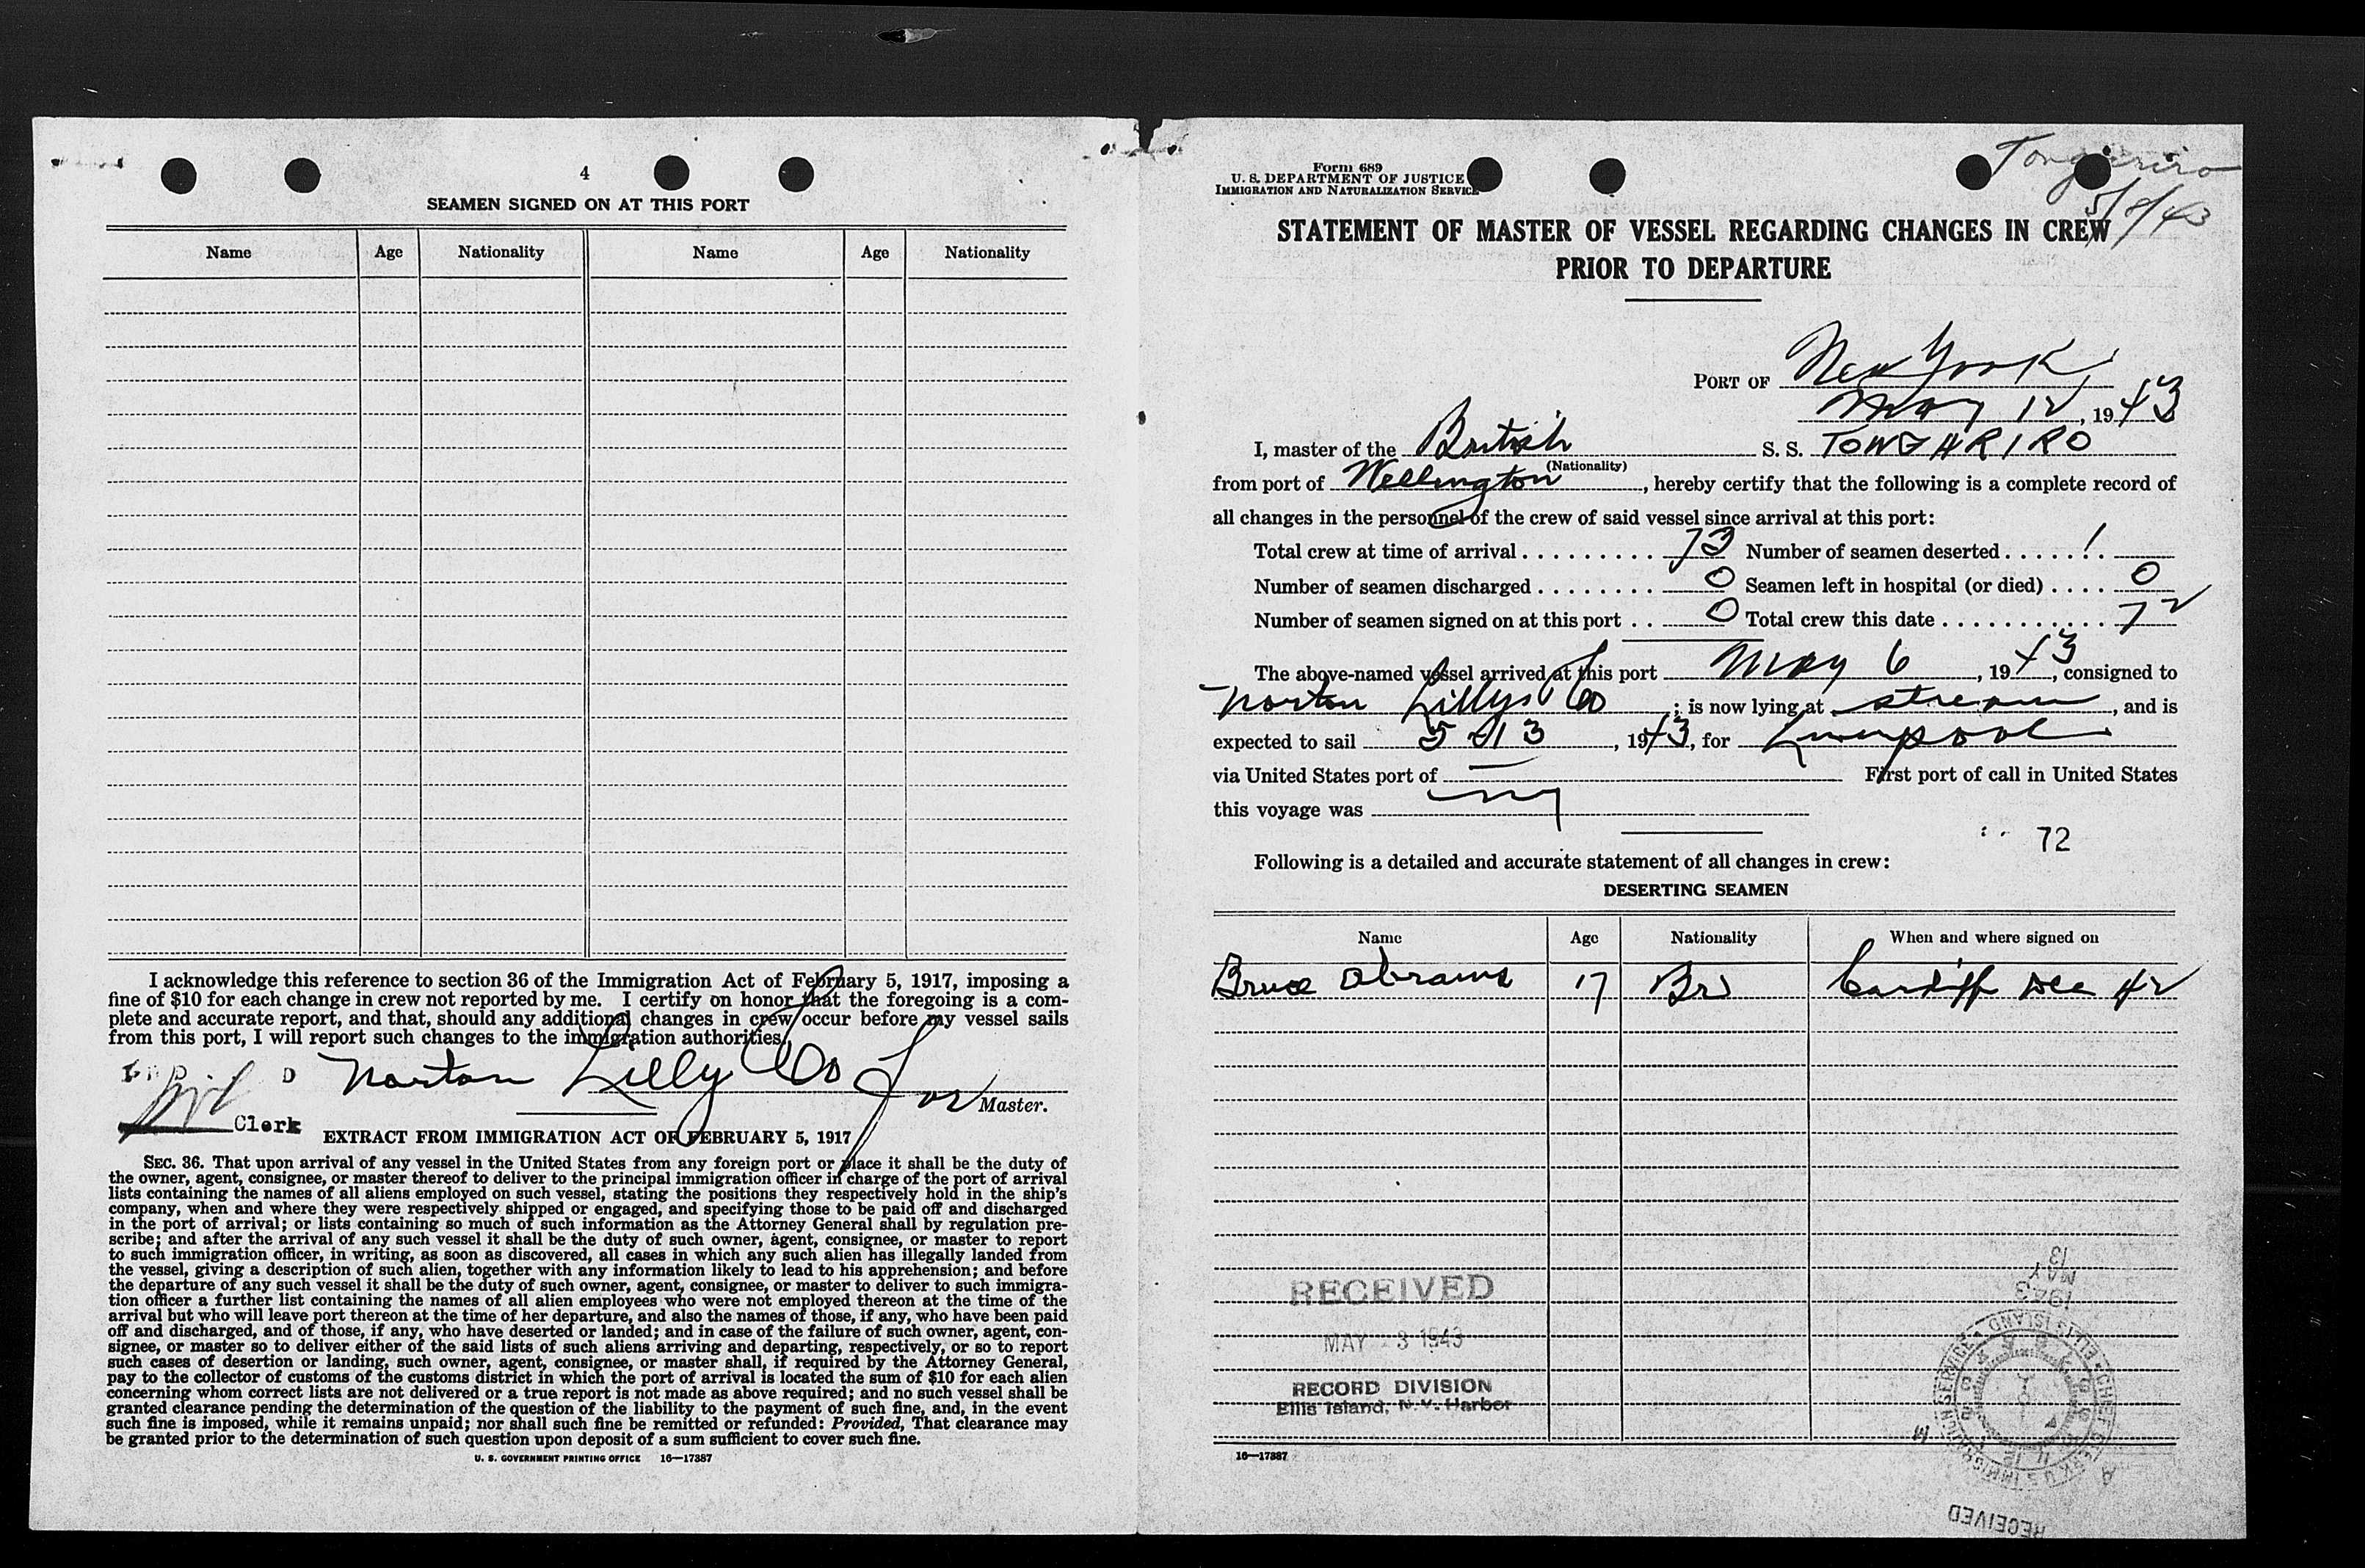 4
SEAMEN SIGNED ON AT THIS PORT
Name Age Nationality Name Age Nationality
I acknowledge this reference to section 36 of the Immigration Act of February 5, 1917, imposing a
fine of $10 for each change in crew not reported by me. I certify on honor that the foregoing is a com-
plete and accurate report, and that, should any additional changes in crew occur before my vessel sails
from this port, I will report such changes to the immigration authorities.
Norton Lilly Co for Master.
Clerk
EXTRACT FROM IMMIGRATION ACT OF FEBRUARY 5, 1917
SEC. 36. That upon arrival of any vessel in the United States from any foreign port or place it shall be the duty of
the owner, agent, consignee, or master thereof to deliver to the principal immigration officer in charge of the port of arrival
lists containing the names of all aliens employed on such vessel, stating the positions they respectively hold in the ship's
company, when and where they were respectively shipped or engaged, and specifying those to be paid off and discharged
in the port of arrival; or lists containing so much of such information as the Attorney General shall by regulation pre-
scribe; and after the arrival of any such vessel it shall be the duty of such owner, agent, consignee, or master to report
to such immigration officer, in writing, as soon as discovered, all cases in which any such alien has illegally landed from
the vessel, giving a description of such alien, together with any information likely to lead to his apprehension; and before
the departure of any such vessel it shall be the duty of such owner, agent, consignee, or master to deliver to such immigra-
tion officer a further list containing the names of all alien employees who were not employed thereon at the time of the
arrival but who will leave port thereon at the time of her departure, and also the names of those, if any, who have been paid
off and discharged, and of those, if any, who have deserted or landed; and in case of the failure of such owner, agent, con-
signee, or master so to deliver either of the said lists of such aliens arriving and departing, respectively, or so to report
such cases of desertion or landing, such owner, agent, consignee, or master shall, if required by the Attorney General,
pay to the collector of customs of the customs district in which the port of arrival is located the sum of $10 for each alien
concerning whom correct lists are not delivered or a true report is not made as above required; and no such vessel shall be
granted clearance pending the determination of the question of the liability to the payment of such fine, and, in the event
such fine is imposed, while it remains unpaid; nor shall such fine be remitted or refunded: Provided, That clearance may
be granted prior to the determination of such question upon deposit of a sum sufficient to cover such fine.
U. S. GOVERNMENT PRINTING OFFICE 16—17387
Form 689
U. S. DEPARTMENT OF JUSTICE
IMMIGRATION AND NATURALIZATION SERVICE
STATEMENT OF MASTER OF VESSEL REGARDING CHANGES IN CREW
PRIOR TO DEPARTURE
PORT OF New York
May 12, 1943
I, master of the British S. S. TONGARIRO
(Nationality)
from port of Wellington, hereby certify that the following is a complete record of
all changes in the personnel of the crew of said vessel since arrival at this port:
Total crew at time of arrival 73 Number of seamen deserted 1
Number of seamen discharged 0 Seamen left in hospital (or died) 0
Number of seamen signed on at this port 0 Total crew this date 72
The above-named vessel arrived at this port May 6, 1943, consigned to
Norton Lillys Co; is now lying at stream, and is
expected to sail 5 13, 1943, for Liverpool
via United States port of — First port of call in United States
this voyage was NY
72
Following is a detailed and accurate statement of all changes in crew:
DESERTING SEAMEN
Name Age Nationality When and where signed on
Bruce Abrams 17 Br Cardiff Dec 42
RECEIVED
MAY 13 1943
RECORD DIVISION
Ellis Island, N.Y. Harbor
1943
MAY
13
RECEIVED
16—17387